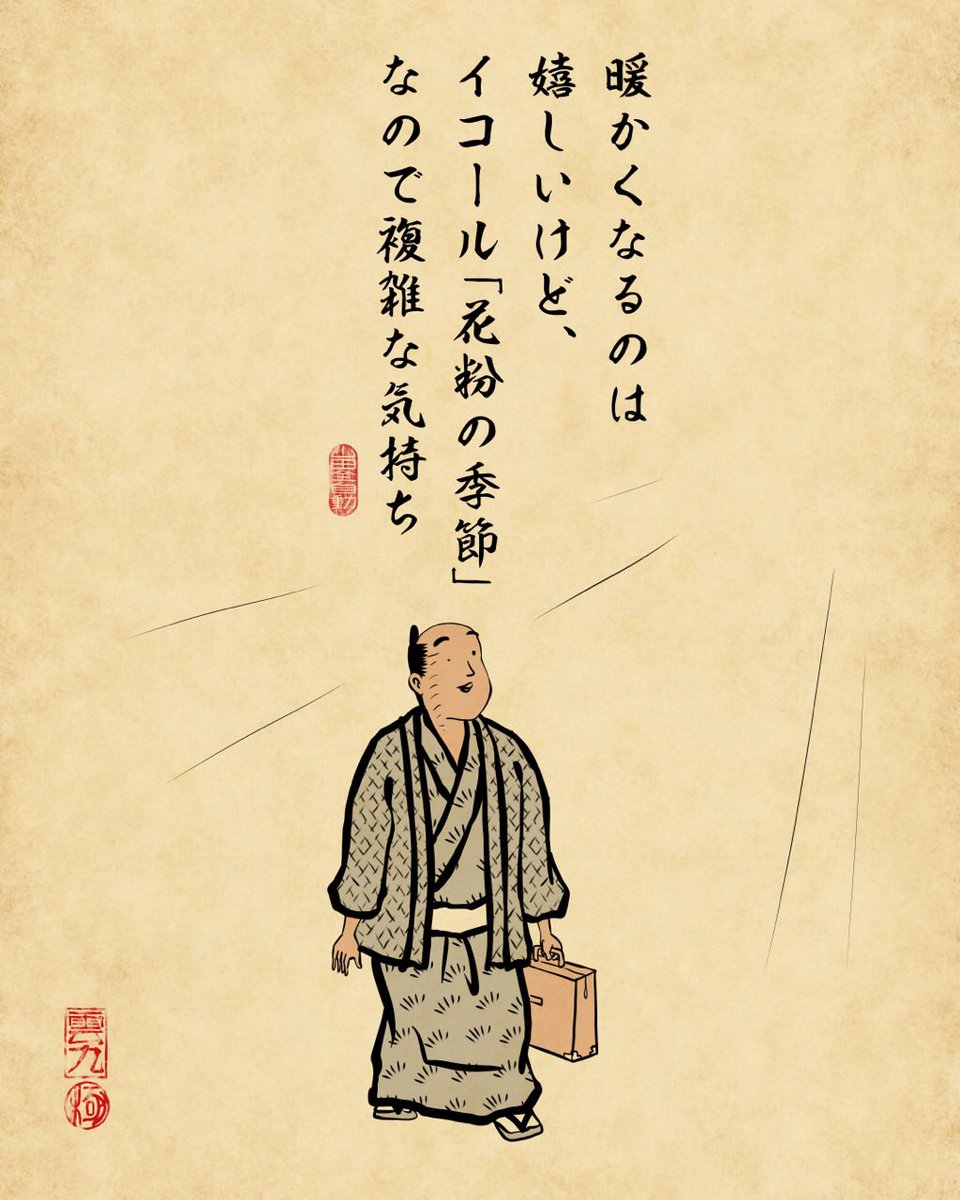 暖かくなるのは
嬉しいけど、
イコール「花粉の季節」
なので複雑な気持ち